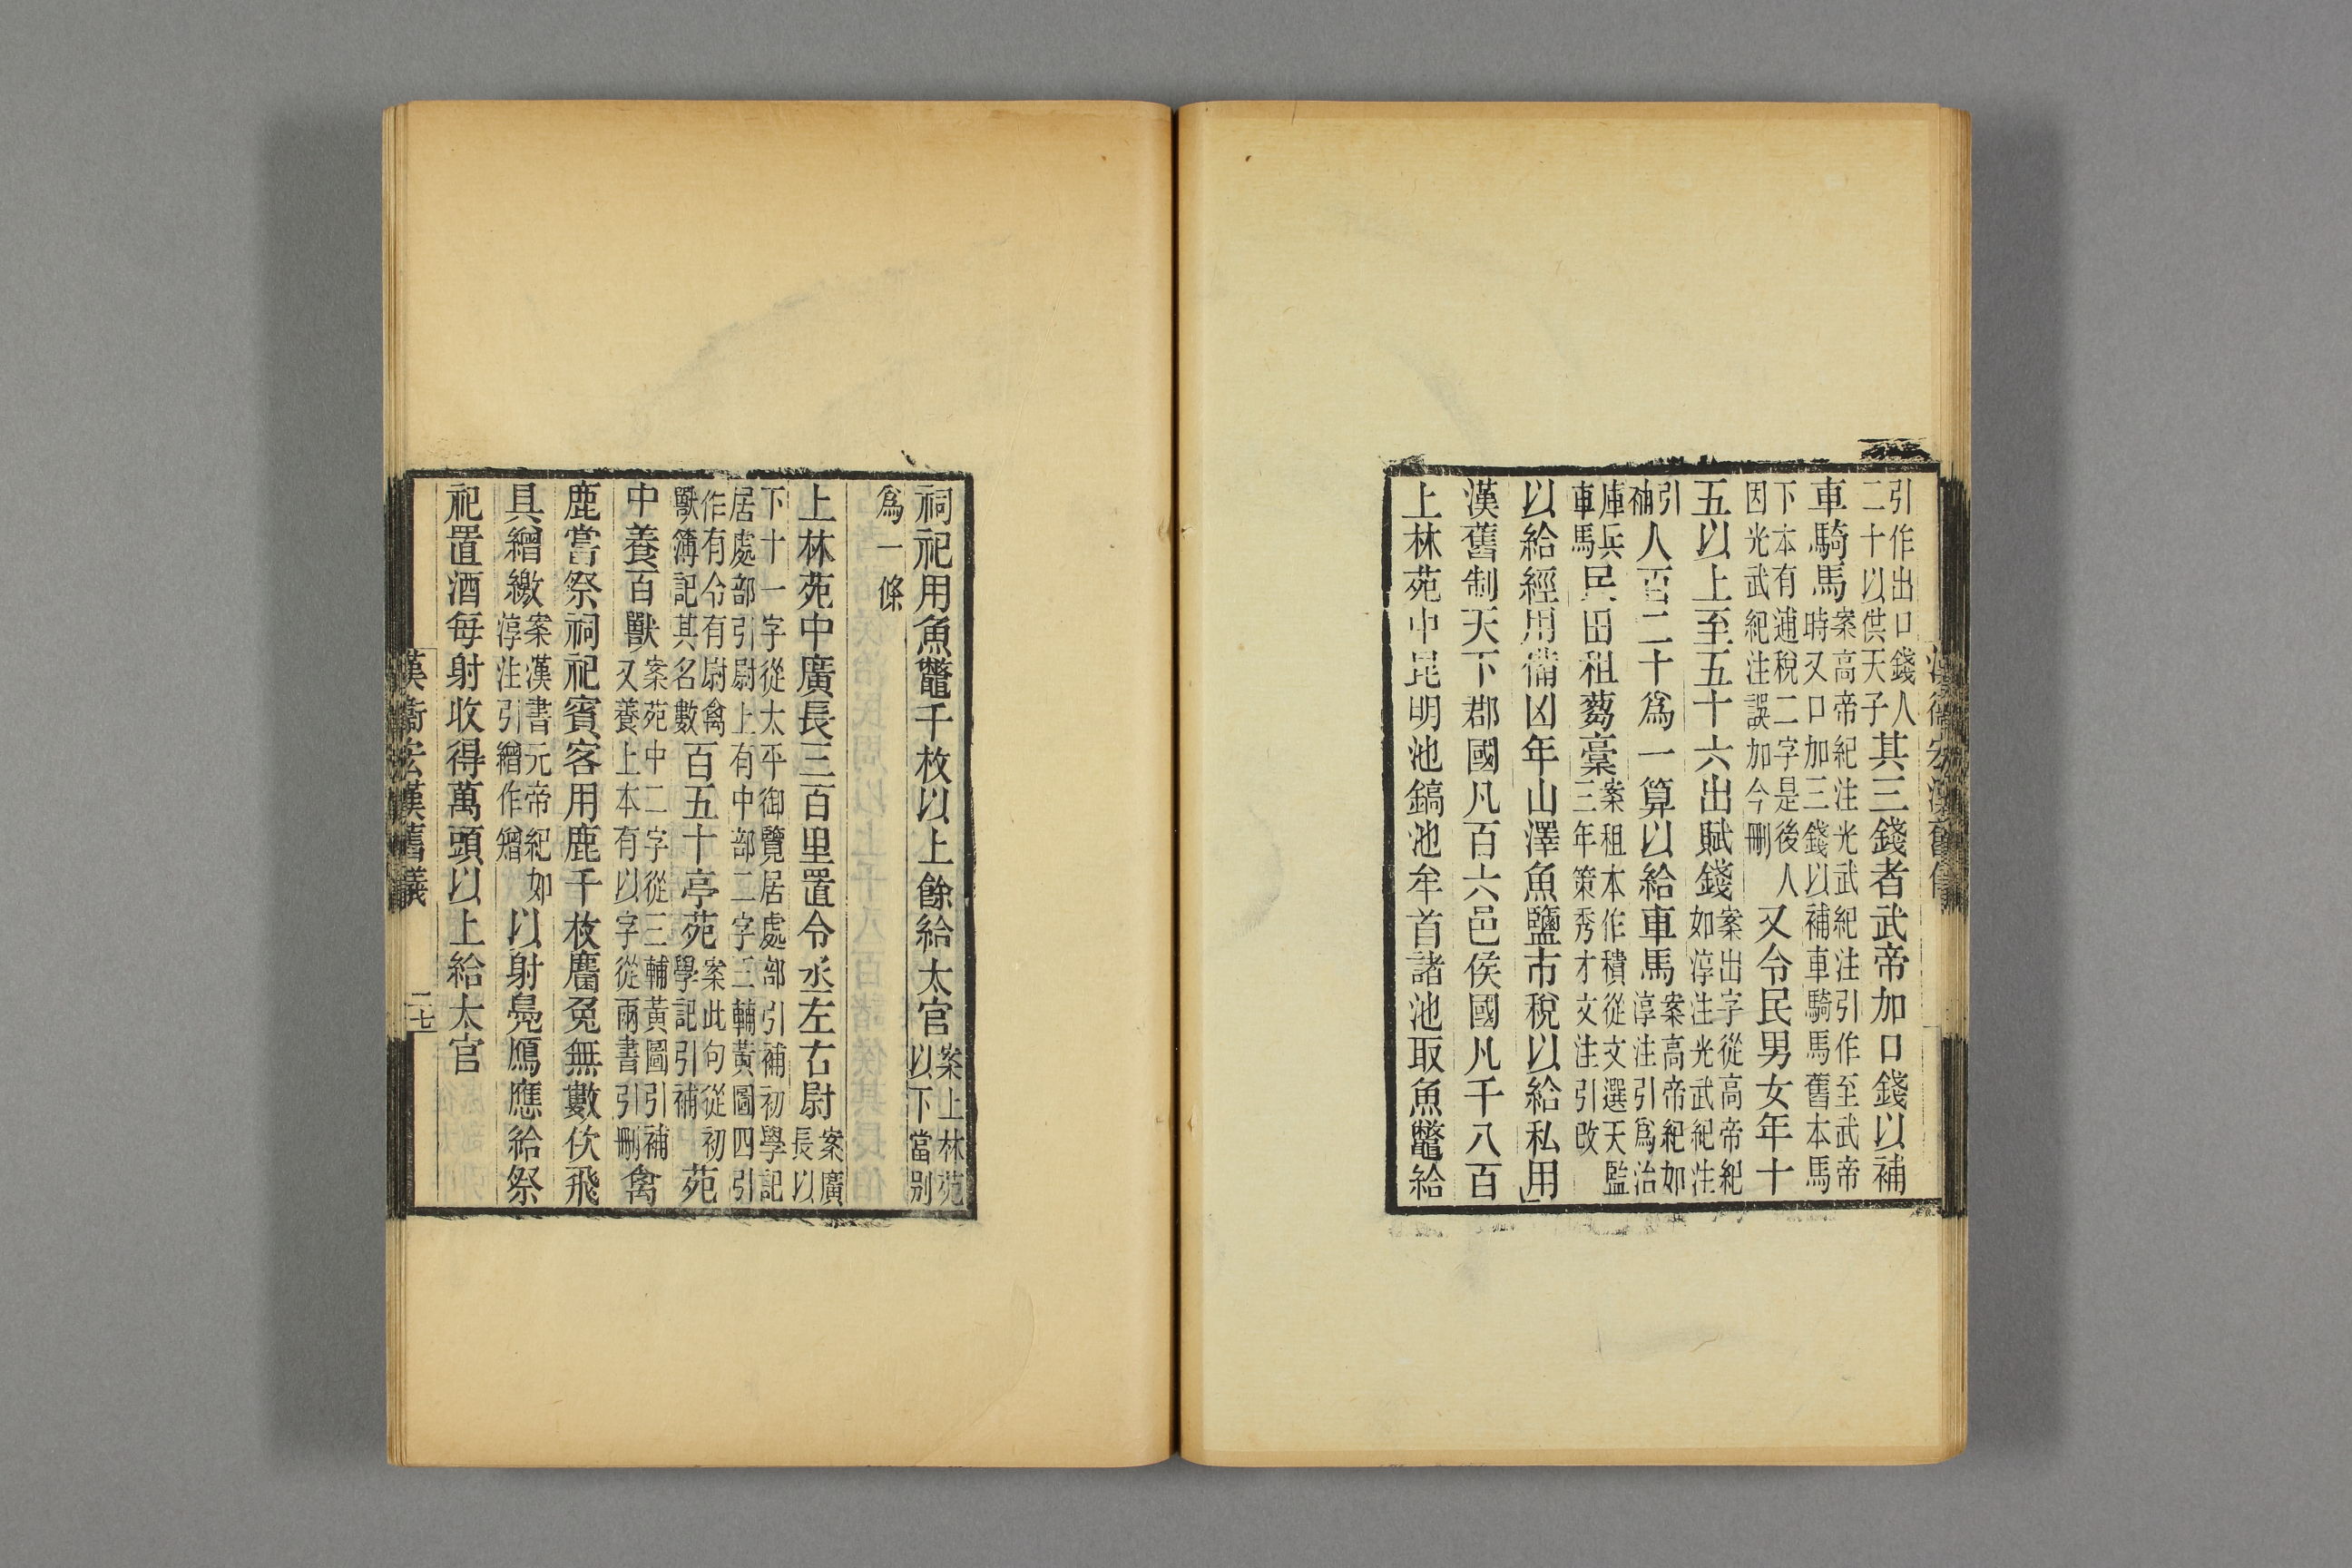 引作出口錢人二十以供天子其三錢者武帝加口錢以補
車騎馬案高帝紀注光武紀注引作至武帝時又口加三錢以補車騎馬舊本馬
下本有逋稅二字是後人因光武紀注誤加今刪又令民男女年十
五以上至五十六出賦錢案出字從高帝紀如淳注光武紀注
引補人百二十爲一算以給車馬案高帝紀如淳注引爲治
庫兵車馬民田租蒭稾案租本作積從文選天監三年策秀才文注引改
以給經用備凶年山澤魚鹽市稅以給私用
漢舊制天下郡國凡百六邑侯國凡千八百
上林苑中昆明池鎬池牟首諸池取魚鼈給
祠祀用魚鼈千枚以上餘給太官案上林苑以下當別
爲一條
上林苑中廣長三百里置令丞左右尉案廣長以
下十一字從太平御覽居處部引補初學記居處部引尉上有中部二字三輔黃圖四引
作有令有尉禽獸簿記其名數百五十亭苑案此句從初學記引補苑
中養百獸案苑中二字從三輔黃圖引補又養上本有以字從兩書引刪禽
鹿嘗祭祠祀賓客用鹿千枚麕兔無數佽飛
具繒繳案漢書元帝紀如淳注引繒作矰以射鳧鴈應給祭
祀置酒每射收得萬頭以上給太官
漢衞宏漢舊儀
二七